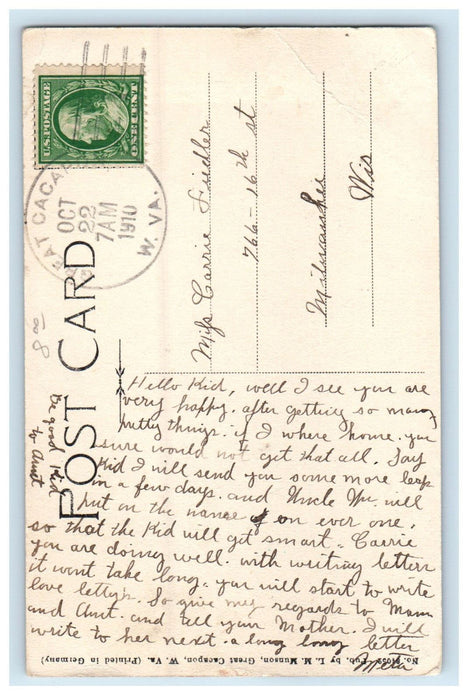 U.S. POSTAGE
ONE CENT
GREAT CACAPON
OCT
22
7AM
1910
W. VA.
POST CARD
Miss Carrie Fiedler
766 - 16th st
Milwaukee
Wis
Hello Kid, well I see you are
very happy. after getting so many
pretty things. if I where home. you
sure would not get that all. Say
Kid I will send you some more
in a few days. and Uncle Wm. will
put on the names of on ever one.
so that the Kid will get smart. Carrie
you are doing well. with writing letters
it wont take long. you will start to write
love letters. So give my regards to Mam
and Aunt. and tell your Mother. I will
write to her next. a long long letter
Meta
be good Kid
to Aunt
Pub. by L. M. Munson, Great Cacapon, W. Va. (Printed in Germany)